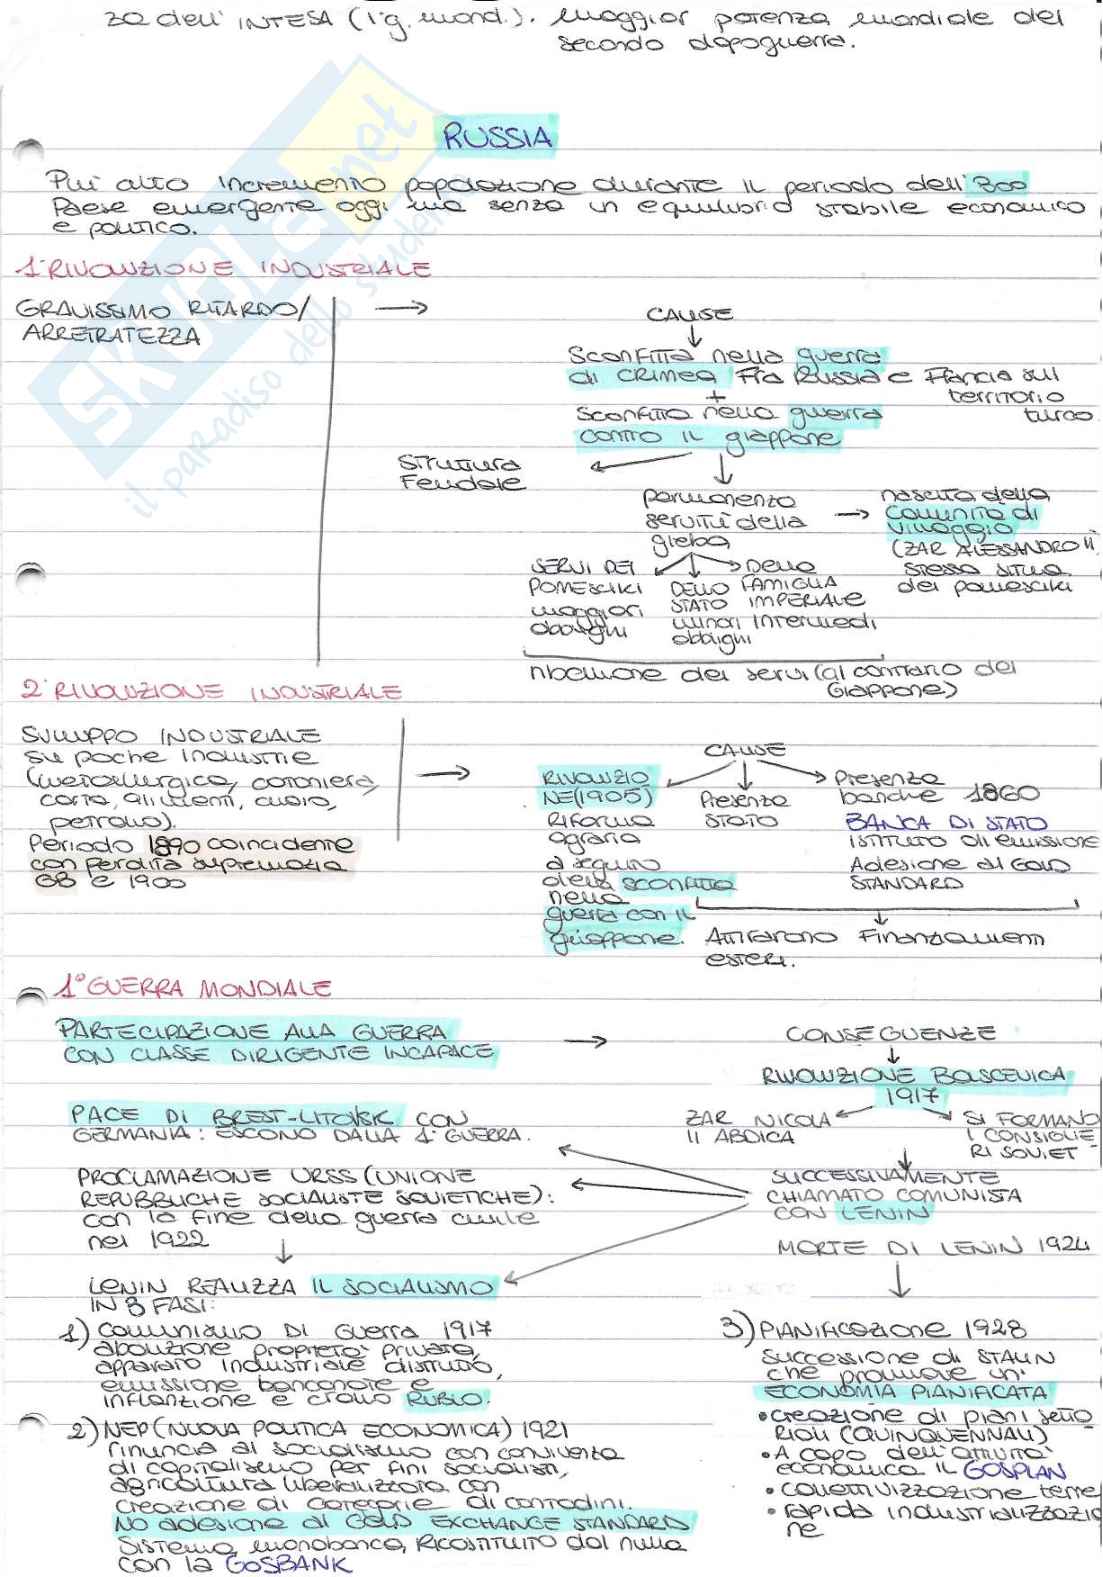 za dell' INTESA (1'g. mond.). maggior potenza mondiale del
secondo dopoguerra.
RUSSIA
Più alto incremento popolazione durante il periodo dell' 800
Paese emergente oggi ma senza un equilibrio stabile economico
e politico.
1' RIVOLUZIONE INDUSTRIALE
GRAVISSIMO RITARDO/
ARRETRATEZZA
CAUSE
Sconfitta nella guerra
di CRIMEA fra Russia e Francia sul
territorio
turco
+
Sconfitta nella guerra
contro il giappone
Struttura
Feudale
permanenza
servitù della
gleba
nascita della
comunità di
villaggio
(ZAR ALESSANDRO II
stessa situa.
dei pomesciki
SERVI DEI
POMESCIKI
maggiori
obblighi
DELLO
STATO
minori
obblighi
DELLA
FAMIGLIA
IMPERIALE
intermedi
ribellione dei servi (al contrario del
Giappone)
2' RIVOLUZIONE INDUSTRIALE
SVILUPPO INDUSTRIALE
su poche industrie
(metallurgica, cotoniera,
carta, alimenti, cuoio,
petrolio).
Periodo 1890 coincidente
con perdita supremazia
GB e 1900
CAUSE
RIVOLUZIO
NE (1905)
Riforma
agraria
a seguito
della sconfitta
nella
guerra con il
giappone.
Presenza
STATO
Presenza
banche 1860
BANCA DI STATO
ISTITUTO di emissione
Adesione al GOLD
STANDARD
Attirarono Finanziamenti
esteri.
1° GUERRA MONDIALE
PARTECIPAZIONE ALLA GUERRA
CON CLASSE DIRIGENTE INCAPACE
CONSEGUENZE
RIVOLUZIONE BOLSCEVICA
1917
ZAR NICOLA
II ABDICA
SI FORMANO
I CONSIGLIE-
RI SOVIET
PACE DI BREST-LITOVSK CON
GERMANIA: ESCONO DALLA 1' GUERRA.
PROCLAMAZIONE URSS (UNIONE
REPUBBLICHE SOCIALISTE SOVIETICHE):
con la fine della guerra civile
nel 1922
SUCCESSIVAMENTE
CHIAMATO COMUNISTA
CON LENIN
MORTE DI LENIN 1924
LENIN REALIZZA IL SOCIALISMO
IN 3 FASI:
1) Comunismo DI Guerra 1917
abolizione proprietà privata,
apparato industriale distrutto,
emissione banconote e
inflazione e crollo RUBLO.
2) NEP (NUOVA POLITICA ECONOMICA) 1921
rinuncia al socialismo con convivenza
di capitalismo per fini socialisti,
agricoltura liberalizzata con
creazione di categorie di contadini.
NO adesione al GOLD EXCHANGE STANDARD
Sistema monobanca, RICOSTITUITO dal nulla
con la GOSBANK
3) PIANIFICAZIONE 1928
successione di STALIN
che promuove un'
ECONOMIA PIANIFICATA
• creazione di piani setto
RIALI (QUINQUENNALI)
• A capo dell'attività
economica il GOSPLAN
• collettivizzazione terre
• rapida industrializzazio
ne
SKUOLA.net
il paradiso dello studente